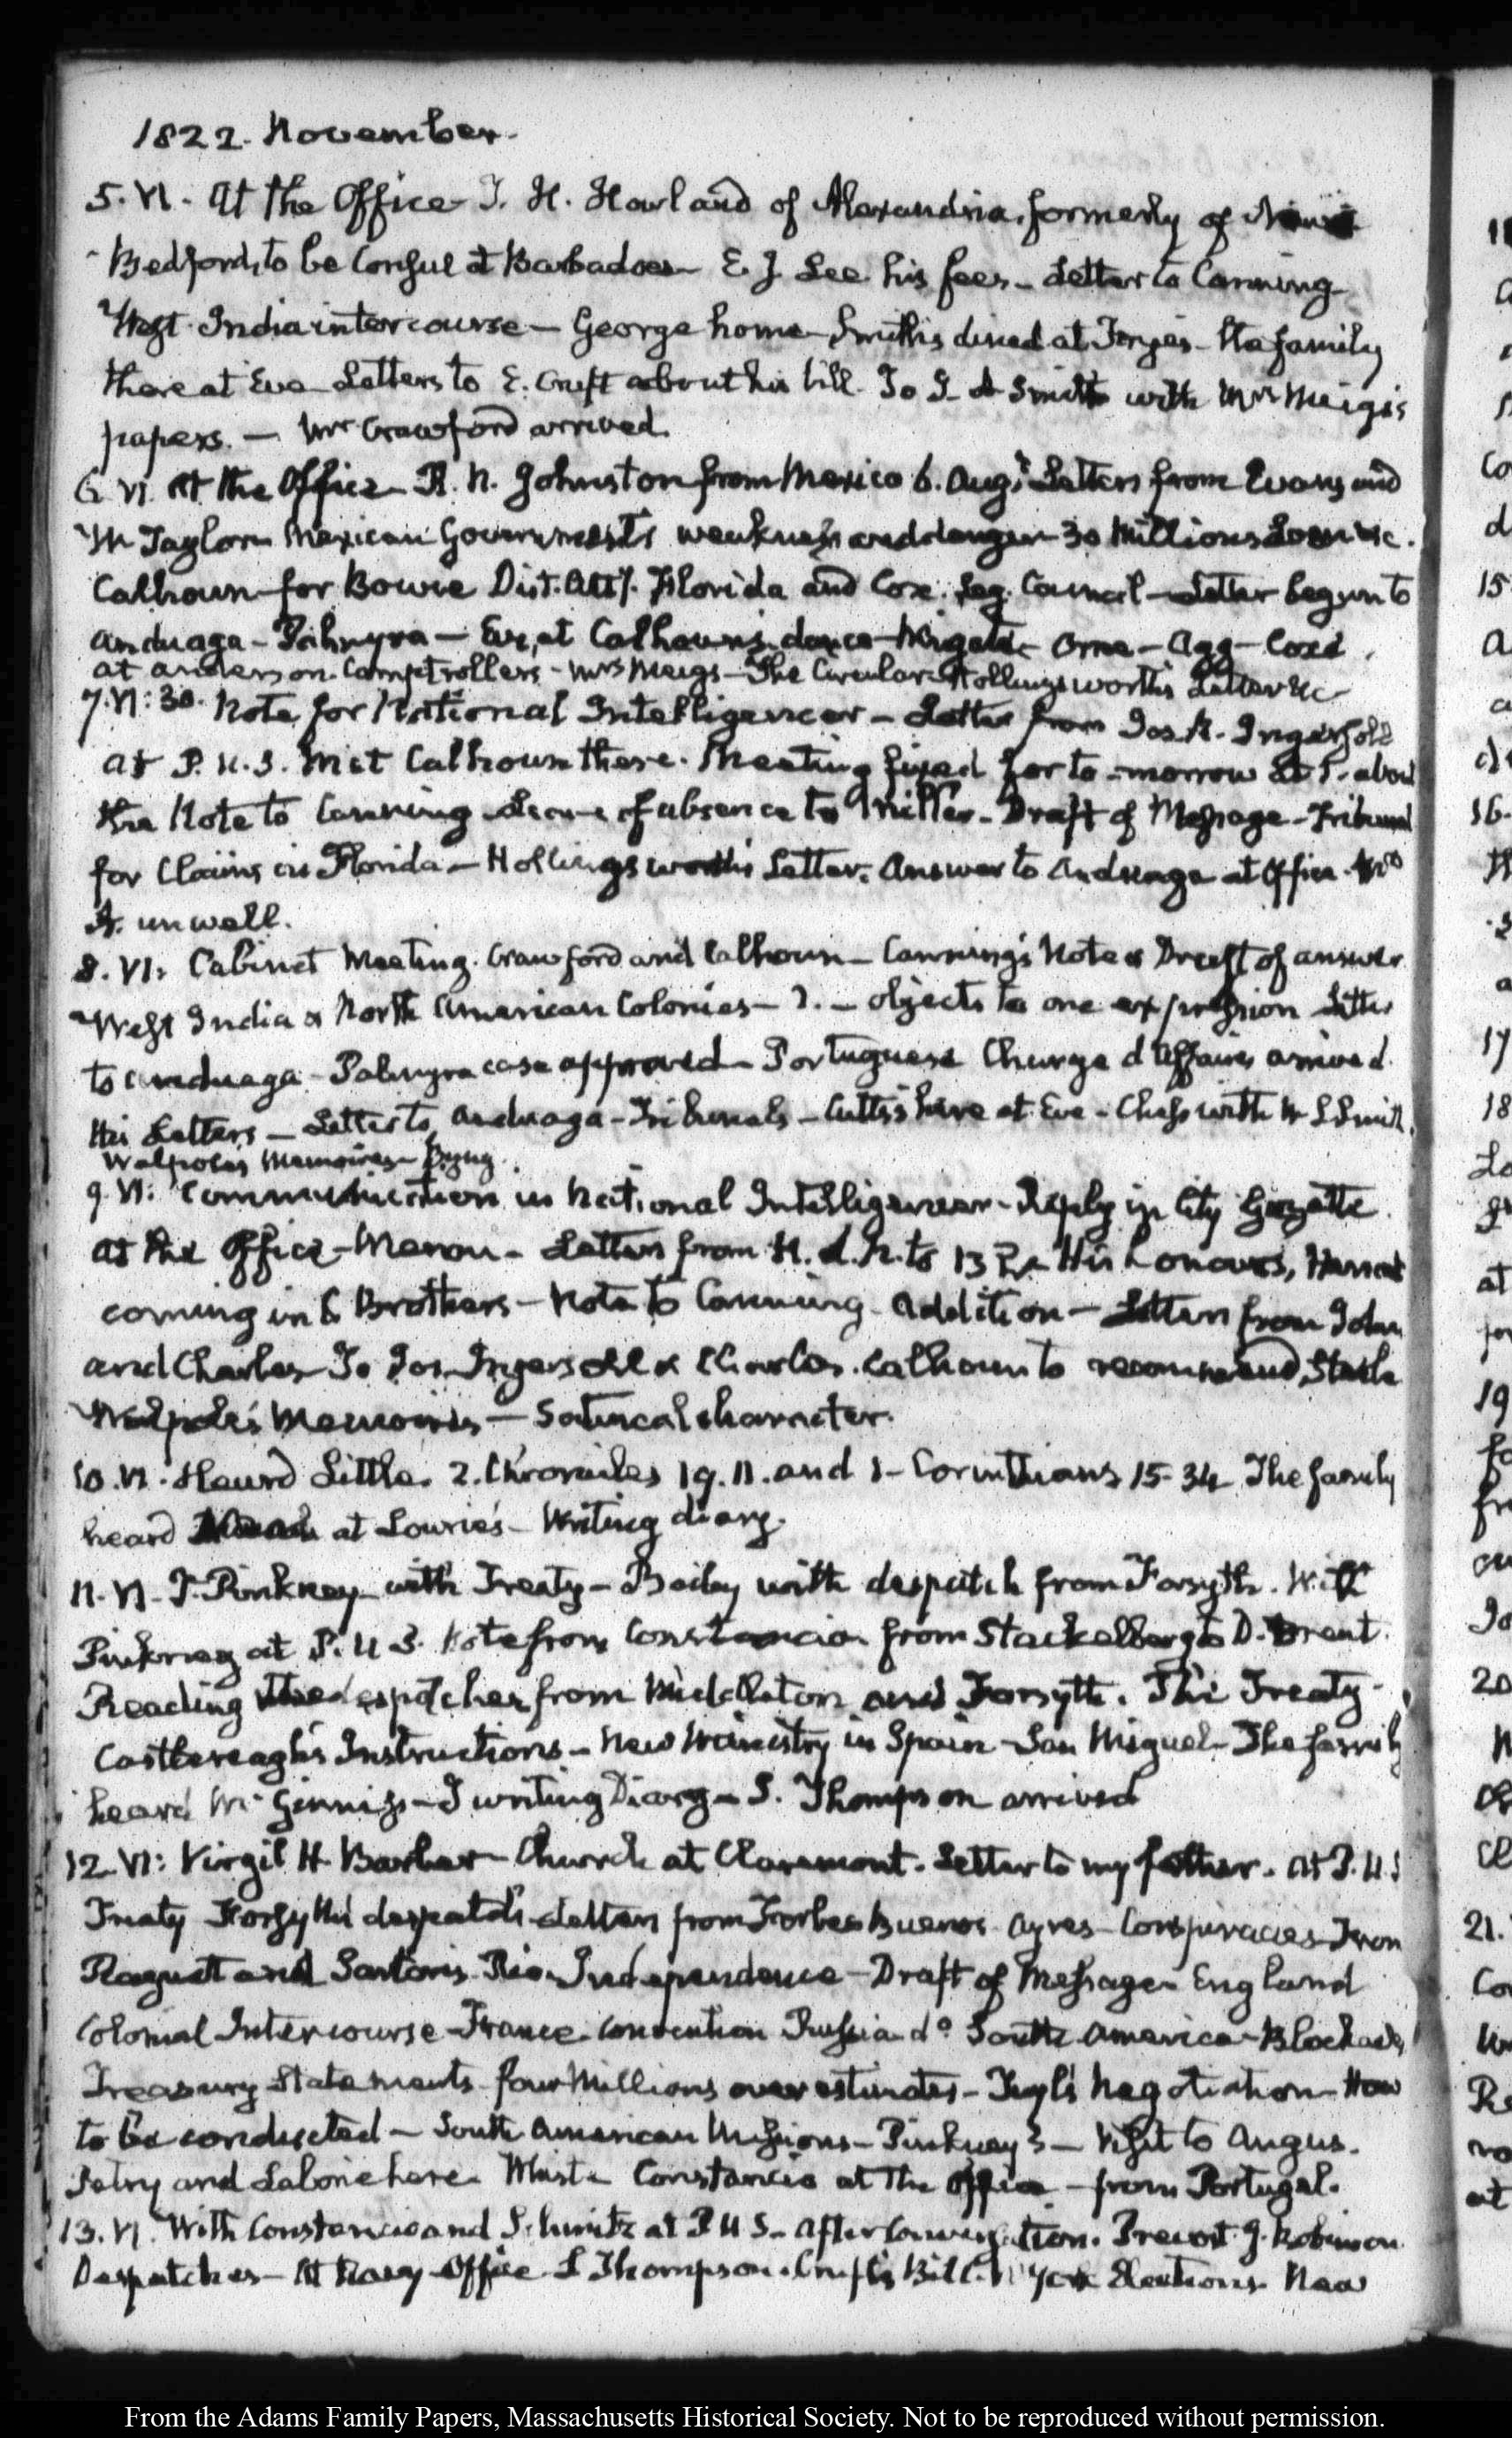 1822. November.
5. VI. At the Office J. H. Howland of Alexandria, formerly of New
Bedford, to be Consul at Barbadoes - E. J. Lee his fees - Letter to Canning
West India intercourse - George home - Smiths dined at Frye's - the family
there at Eve - Letters to E. Cruft about his bill. To J. A Smith with Mrs Meigs's
papers. - Mr Crawford arrived.
6. VI. At the Office - R. N. Johnston from Mexico 6. Augt. Letters from Evans and
W Taylor - Mexican Government's weakness and danger - 30 Millions Loan &c.
Calhoun for Bowie Dist. Atty. Florida and Coxe. Leg. Council - Letter begun to
Anduaga - Palmyra - Eve, at Calhoun's dance - Orne - Agg - Coxe
at Anderson Comptrollers - Mrs Meigs - The Circular - Hollingsworth's Letter &c
7. VI: 30. Note for National Intelligencer - Letter from Jos. R. Ingersoll
At P. U. S. Met Calhoun there. Meeting fixed for to-morrow at 1. about
the Note to Canning - Leave of absence to Miller - Draft of Message - Tribunal
for Claims in Florida - Hollingsworth's Letter. Answer to Anduaga at Office. Mrs
A. unwell.
8. VI: Cabinet Meeting. Crawford and Calhoun - Canning's Note & Draft of answer
West India & North American Colonies - objects to one expression Letter
to Anduaga - Palmyra case approved - Portuguese Charge d'Affaires arrived.
His Letters - Letter to Anduaga - Tribunals - Cutts's here at Eve - Chess with W S Smith.
Walpole's Memoires - Byng.
9. VI: Communication in National Intelligencer - Reply in City Gazette.
At the Office - Letters from to 13 His honours,
coming in & Brothers - Note to Canning - Addition - Letters from John
and Charles To Jos. Ingersoll & Charles. Calhoun to recommend,
Walpole's Memoirs - Satirical character.
10. VI. Heard Little. 2. Chronicles 19. 11. and 1 - Corinthians 15-34 The family
heard at Lowrie's - Writing diary.
11. VI - J. Pinkney with Treaty - Bailey with despatch from Forsyth. With
Pinkney at P. U S. Note from Constancio from Stackelberg to D. Brent.
Reading the despatches from Middleton and Forsyth. The Treaty -
Castlereagh's Instructions - New Ministry in Spain - San Miguel - The family
heard McGinnis - I writing Diary - S. Thompson arrived
12. VI: Virgil H Barber - Church at Claremont. Letter to my father. At P. U. S
Treaty Forsyth's despatch - Letters from Forbes Buenos Ayres - Conspiracies - From
Raguet and Sartoris. Rio - Independence - Draft of Message - England
Colonial Intercourse - France Convention Russia do South America - Blockade,
Treasury Statements four Millions over estimates - Tuyl's Negotiation - How
to be conducted - South American Missions - Pinkney's - Visit to Angus.
Petry and Laborie here - Whist - Constancio at the Office - from Portugal.
13. VI. With Constancio and Schmitz at P U S - After Conversation. Prevost. J. Robinson
Despatches - At Navy Office. S Thompson. Cruft's Bill. N York Elections New
From the Adams Family Papers, Massachusetts Historical Society. Not to be reproduced without permission.